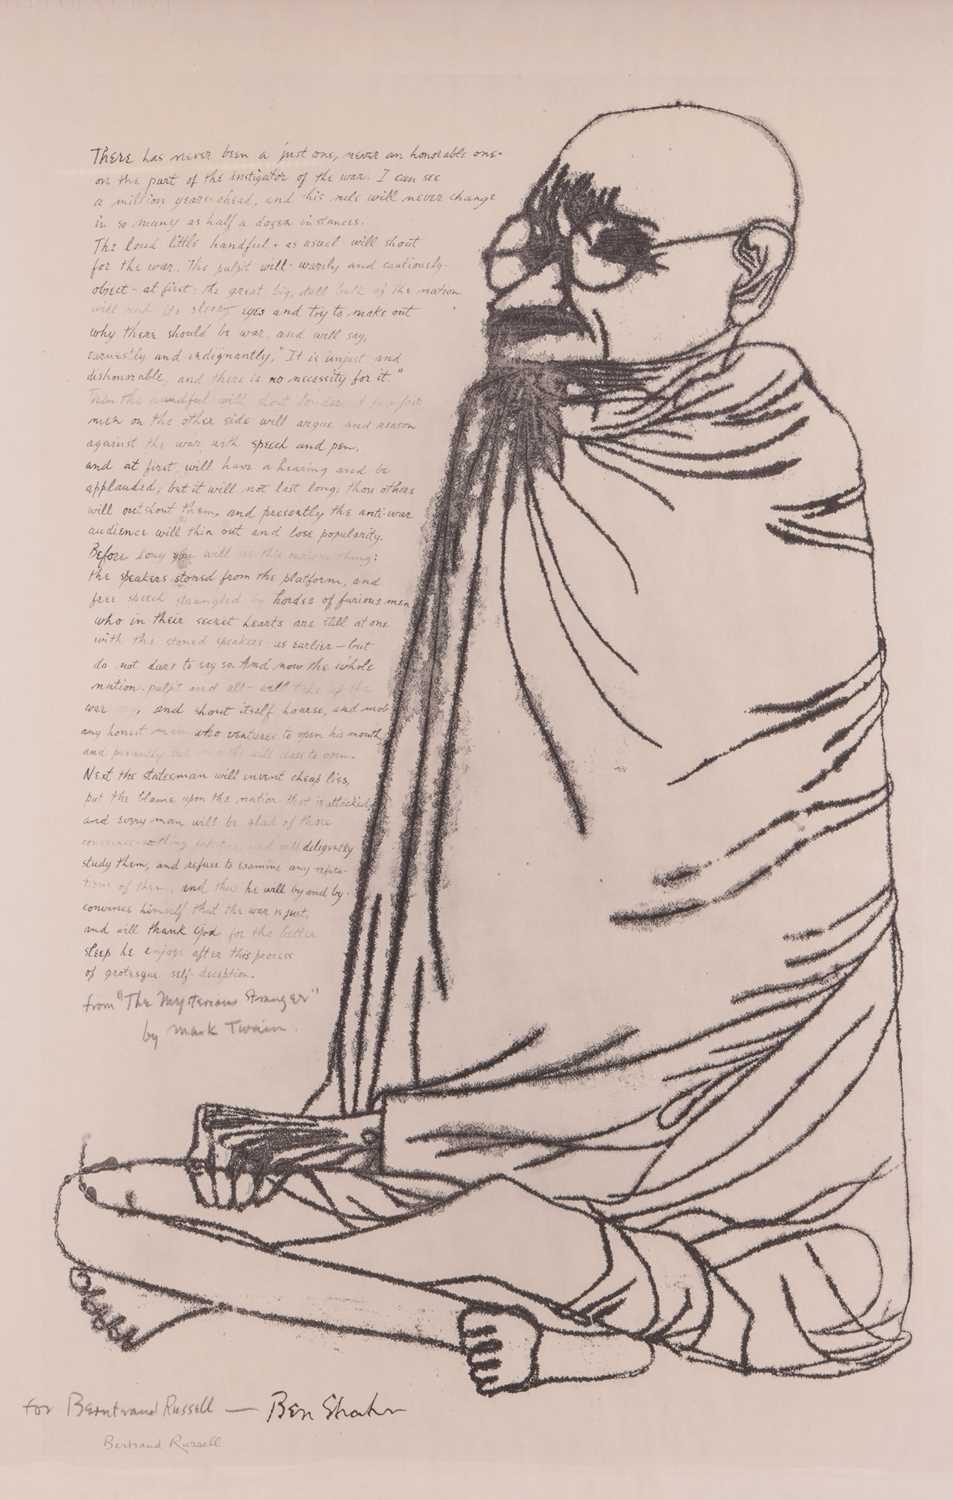 There has never been a just one, never an honorable one-
on the part of the instigator of the war. I can see
a million years ahead, and this rule will never change
in so many as half a dozen instances.
The loud little handful - as usual will shout
for the war. The pulpit will - warily and cautiously -
object - at first. the great big, dull bulk of the nation
will rub its sleepy eyes and try to make out
why there should be war, and will say,
earnestly and indignantly, "It is unjust and
dishonorable, and there is no necessity for it."
Then the handful will shout louder. A few fair
men on the other side will argue and reason
against the war with speech and pen,
and at first will have a hearing and be
applauded, but it will not last long; those others
will outshout them, and presently the anti-war
audience will thin out and lose popularity.
Before long you will see this curious thing:
the speakers stoned from the platform, and
free speech strangled by hordes of furious men
who in their secret hearts are still at one
with the stoned speakers as earlier - but
do not dare to say so. And now the whole
nation - pulpit and all - will take up the
war , and shout itself hoarse, and mob
any honest man who ventures to open his mouth
and presently such mouths will cease to open.
Next the statesman will invent cheap lies,
put the blame upon the nation that is attacked
and every man will be glad of those
conscience-soothing and will diligently
study them, and refuse to examine any refuta-
tions of them, and thus he will by and by
convince himself that the war is just,
and will thank God for the better
sleep he enjoys after this process
of grotesque self-deception.
from "The Mysterious Stranger"
by Mark Twain.
for Berntrand Russell — Ben Shahn
Bertrand Russell